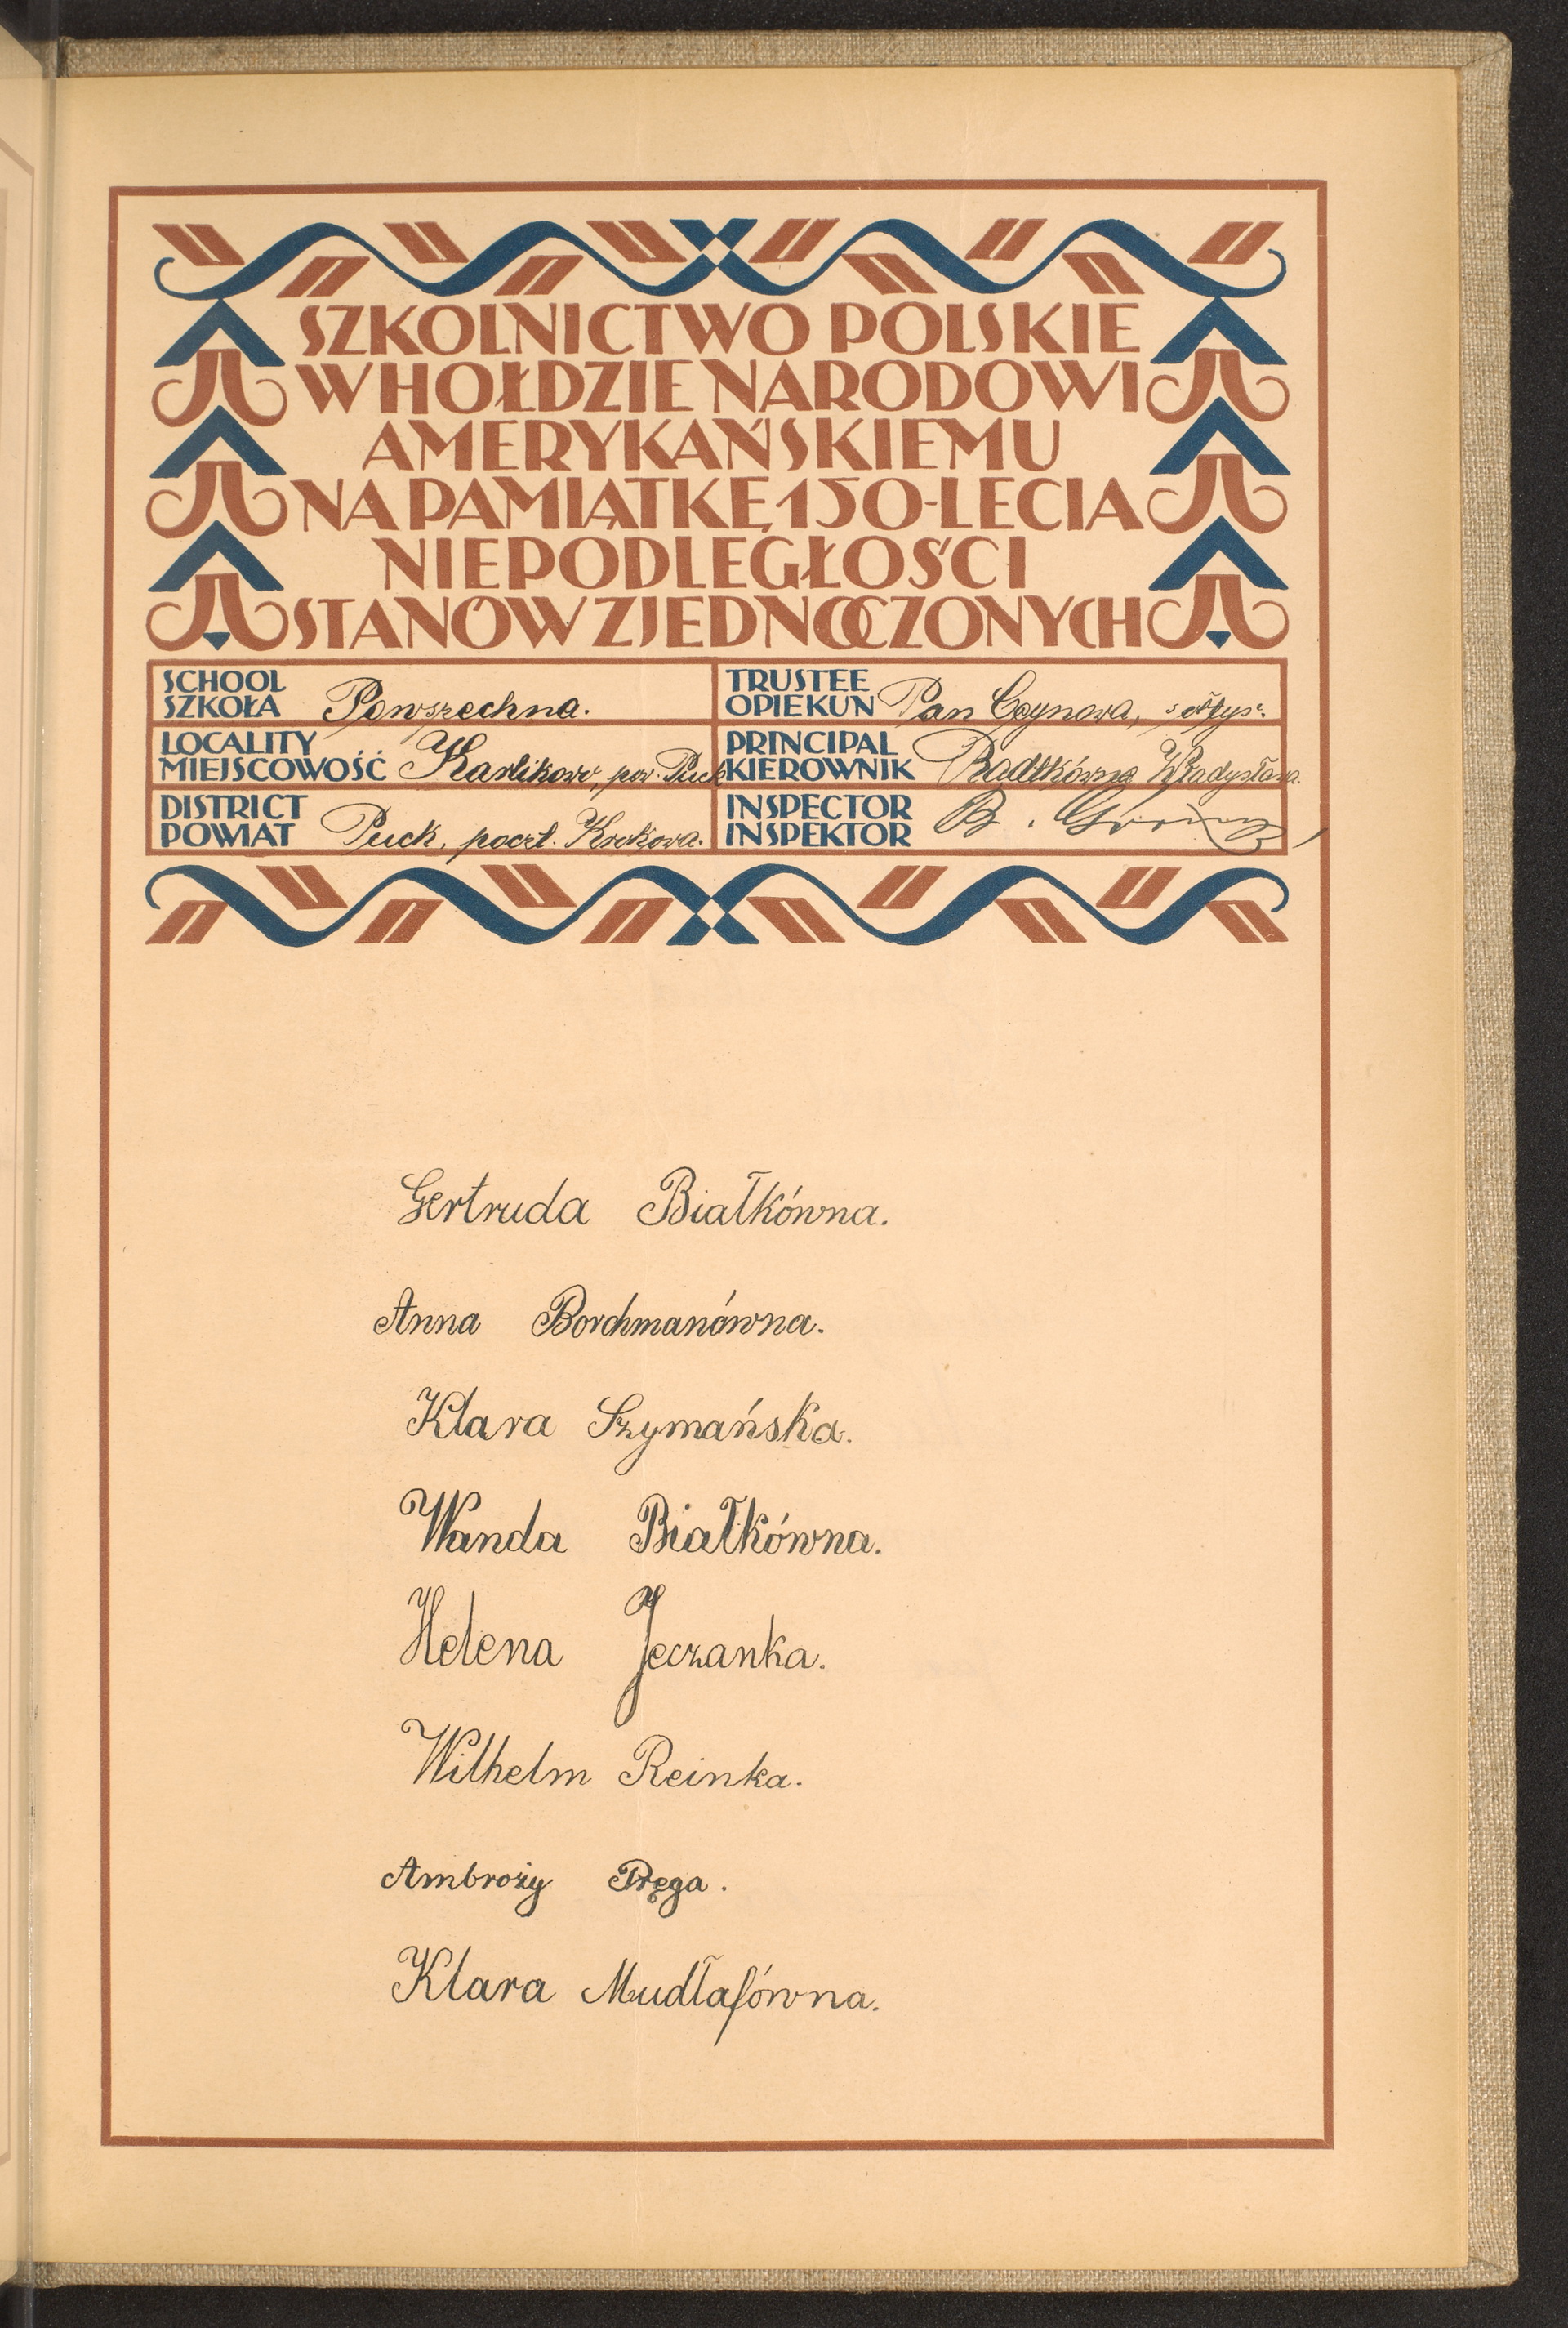 SZKOLNICTWO POLSKIE
W HOŁDZIE NARODOWI
AMERYKAŃSKIEMU
NA PAMIĄTKĘ 150-LECIA
NIEPODLEGŁOŚCI
STANÓW ZJEDNOCZONYCH
SCHOOL
SZKOŁA Powszechna.
TRUSTEE
OPIEKUN Pan Ceynowa, sołtys.
LOCALITY
MIEJSCOWOŚĆ Karlikowo, pow. Puck
PRINCIPAL
KIEROWNIK Bądtkówna Władysława.
DISTRICT
POWIAT Puck, poczt. Krokowa.
INSPECTOR
INSPEKTOR B.
Gertruda Białkówna.
Anna Borchmanówna.
Klara Szymańska.
Wanda Białkówna.
Helena Jeczanka.
Wilhelm Reinka.
Ambroży Pręga.
Klara Mudlafówna.